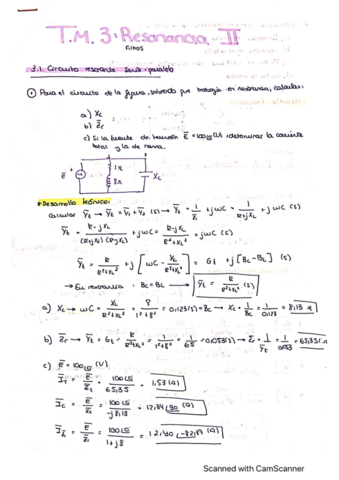 T.M. 3: Resonancia II
Filtros
3.1. Circuito resonante serie-paralelo
① Para el circuito de la figura, sabiendo que trabaja en resonancia, calcular:
a) Xc
b) Z̄r
c) Si la fuente de tensión Ē = 100∠0 (V) determinar la corriente
total y la de rama.
Ē
1Ω
8Ω
Xc
* Desarrollo teórico:
calcular Ȳt → Ȳt = Ȳ1 + Ȳ2 (S) → Ȳt = 1/Z̄1 + jωC = 1/(R+jXL) + jωC (S)
Ȳt = (R-jXL)/((R+jXL)(R-jXL)) + jωC = (R-jXL)/(R²+XL²) + jωC (S)
Ȳt = R/(R²+XL²) + j[ωC - XL/(R²+XL²)] = Gt + j[Bc-BL] (S)
→ En resonancia : Bc = BL → Ȳt = R/(R²+XL²) (S)
a) Xc → ωC = XL/(R²+XL²) = 8/(1²+8²) = 0,123 (S) = Bc → Xc = 1/Bc = 1/0,123 = 8,13 Ω
b) Z̄r → Ȳt = Gt = R/(R²+XL²) = 1/(1²+8²) = 1/65 = 0,0153 (S) → Z̄r = 1/Ȳt = 1/0,0153 = 65,35 Ω
c) Ē = 100∠0 (V)
Īt = Ē/Z̄t = 100∠0/65,35 = 1,53 (A)
Īc = Ē/X̄c = 100∠0/-j8,13 = 12,3∠90 (A)
ĪZ1 = Ē/Z̄1 = 100∠0/(1+j8) = 12,40∠-82,87 (A)
Scanned with CamScanner